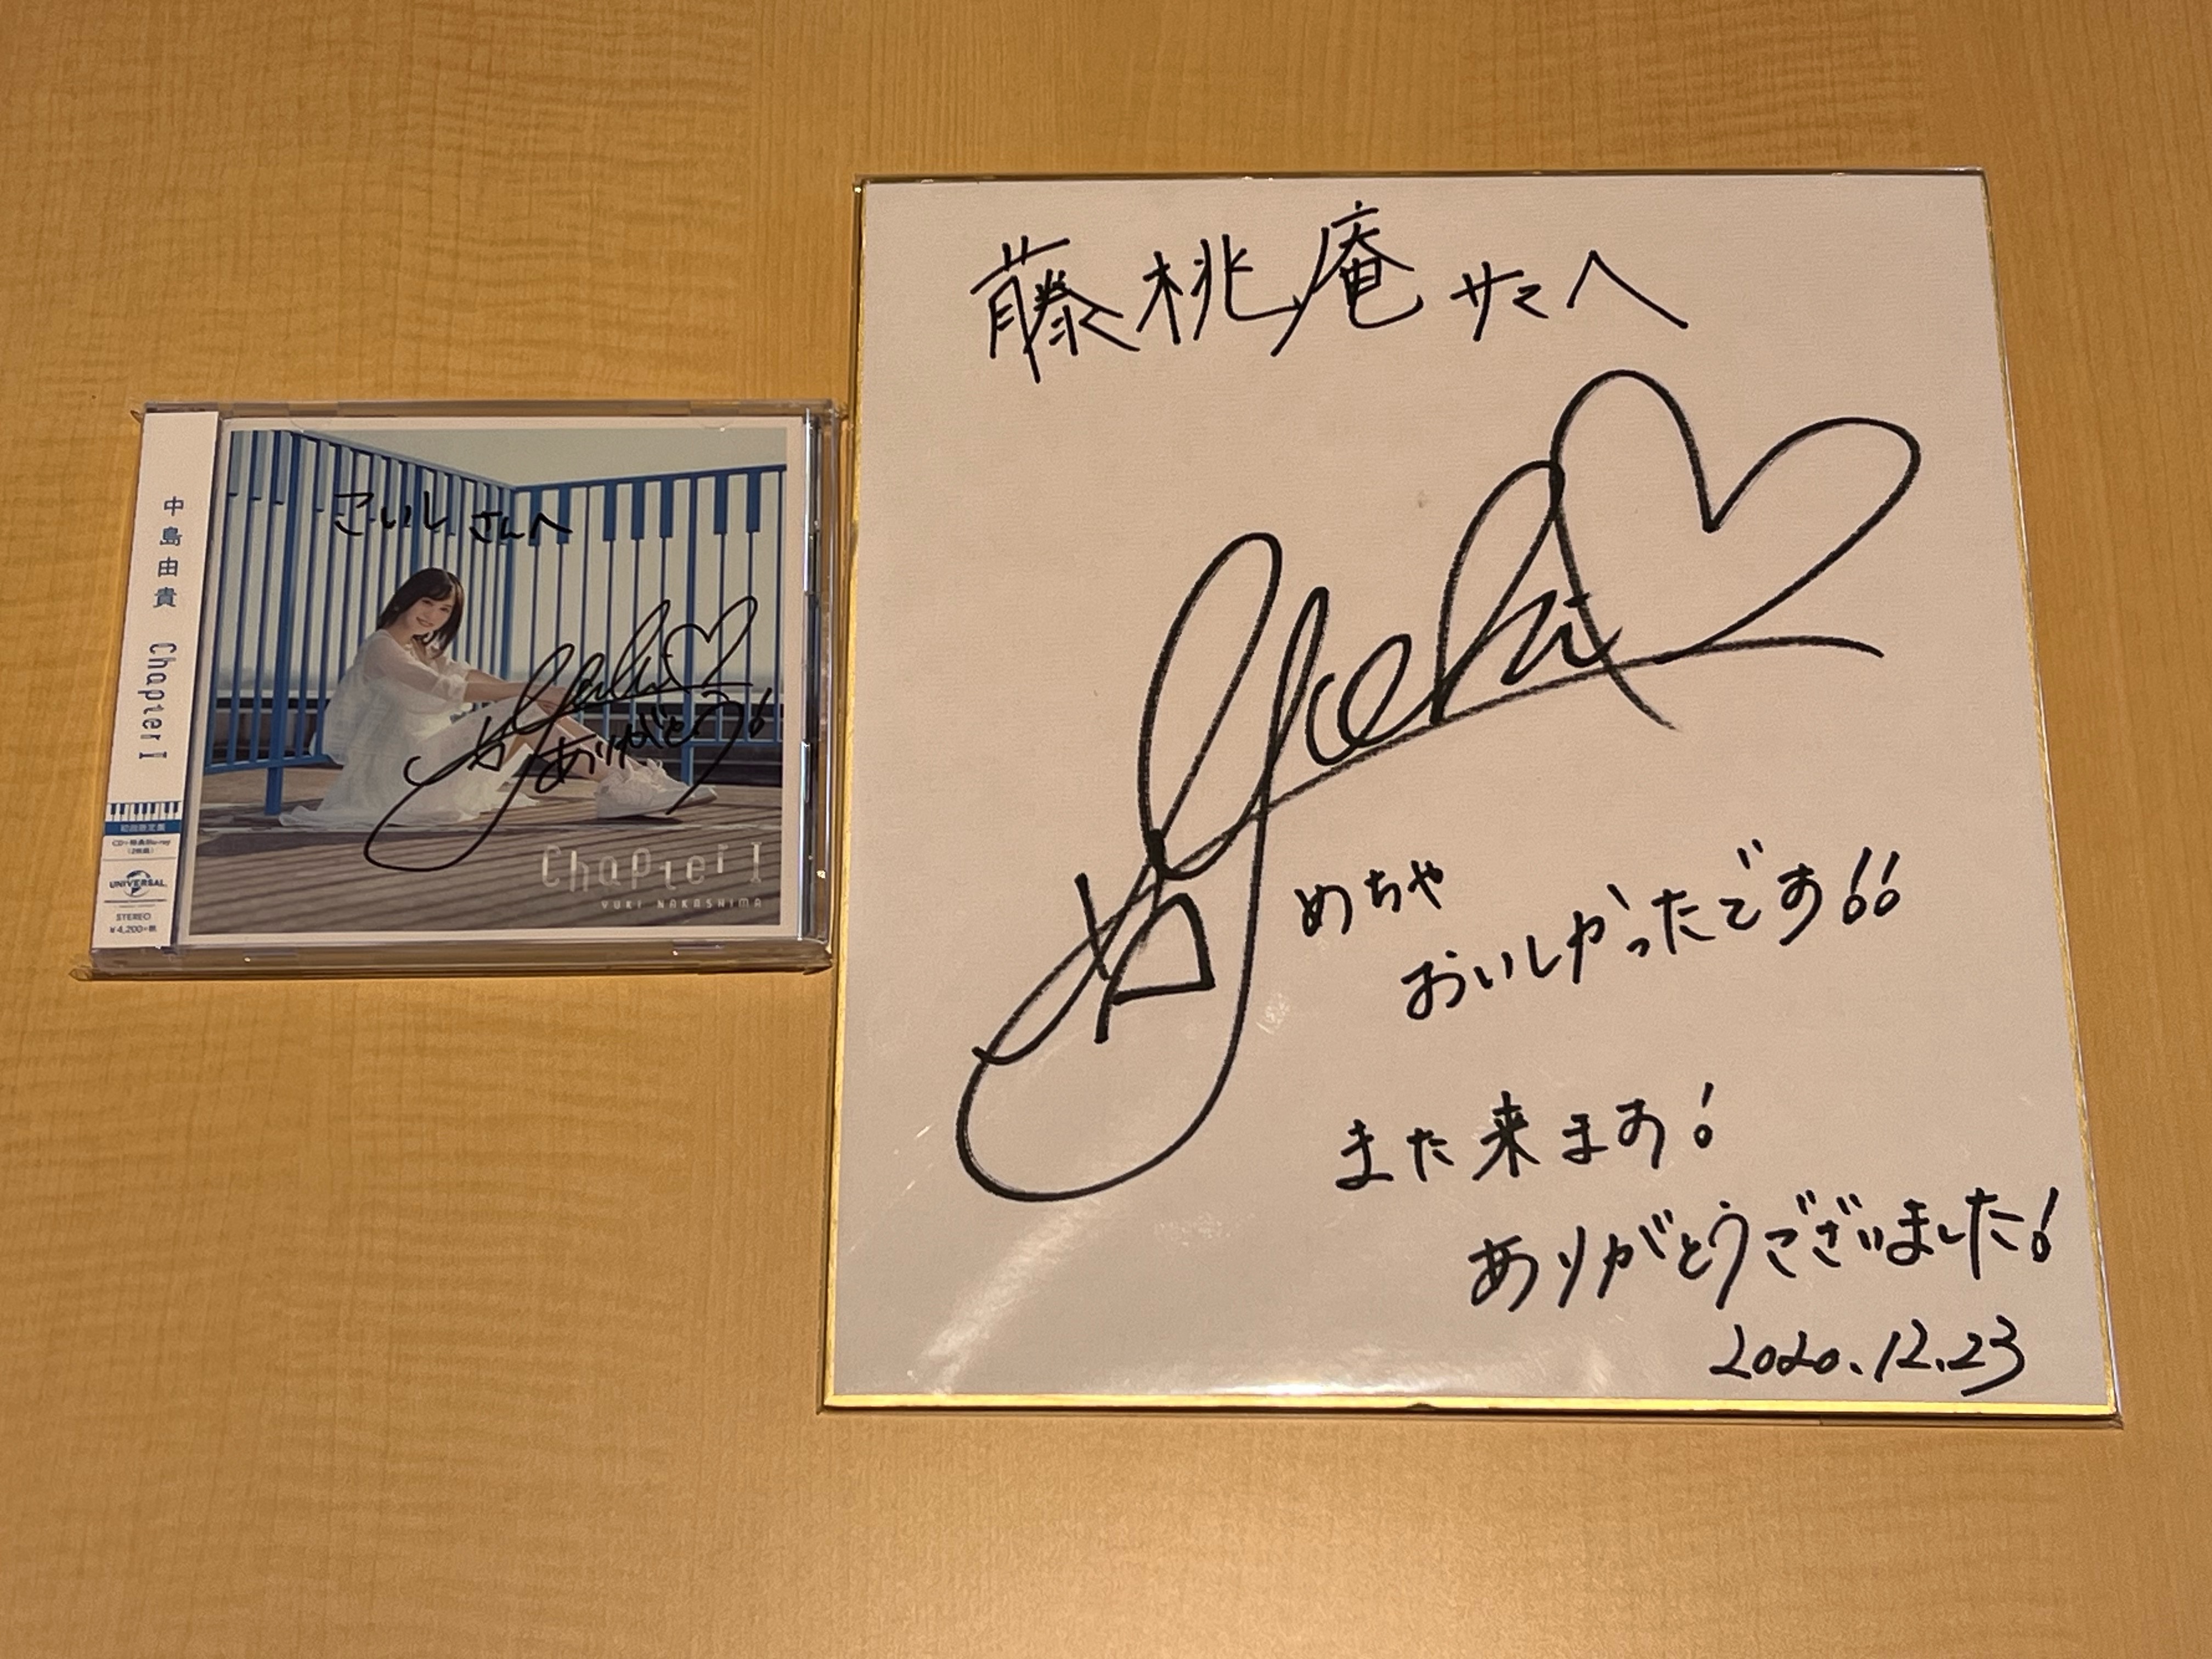 中島由貴 Chapter I
初回限定盤
CD+特典Blu-ray
(2枚組)
UNIVERSAL
STEREO
¥4,200+税
こいしさんへ
Yuki
ありがとう!
Chapter I
YUKI NAKASHIMA
藤桃庵サマへ
Yuki
めちゃ
おいしかったです!!
また来ます!
ありがとうございました!
2020.12.23